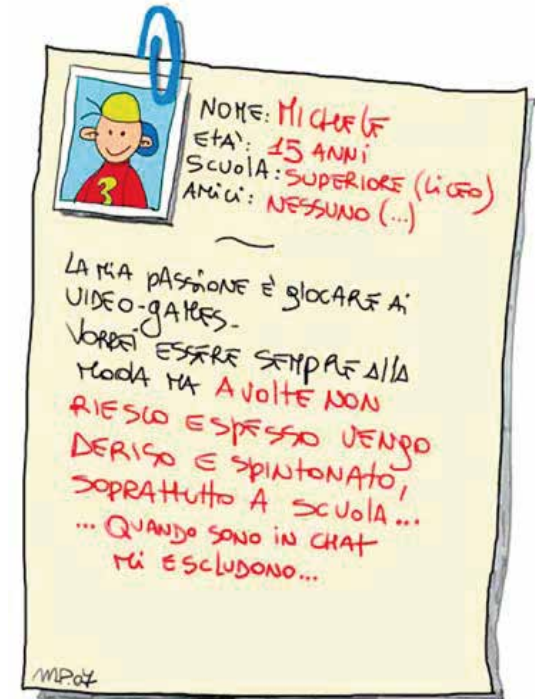 NOME: MICHELE
ETÀ: 15 ANNI
SCUOLA: SUPERIORE (LICEO)
AMICI: NESSUNO (...)
LA MIA PASSIONE È GIOCARE AI
VIDEO-GAMES.
VORREI ESSERE SEMPRE ALLA
MODA MA A VOLTE NON
RIESCO E SPESSO VENGO
DERISO E SPINTONATO,
SOPRATTUTTO A SCUOLA...
... QUANDO SONO IN CHAT
MI ESCLUDONO...
3
M.P.07